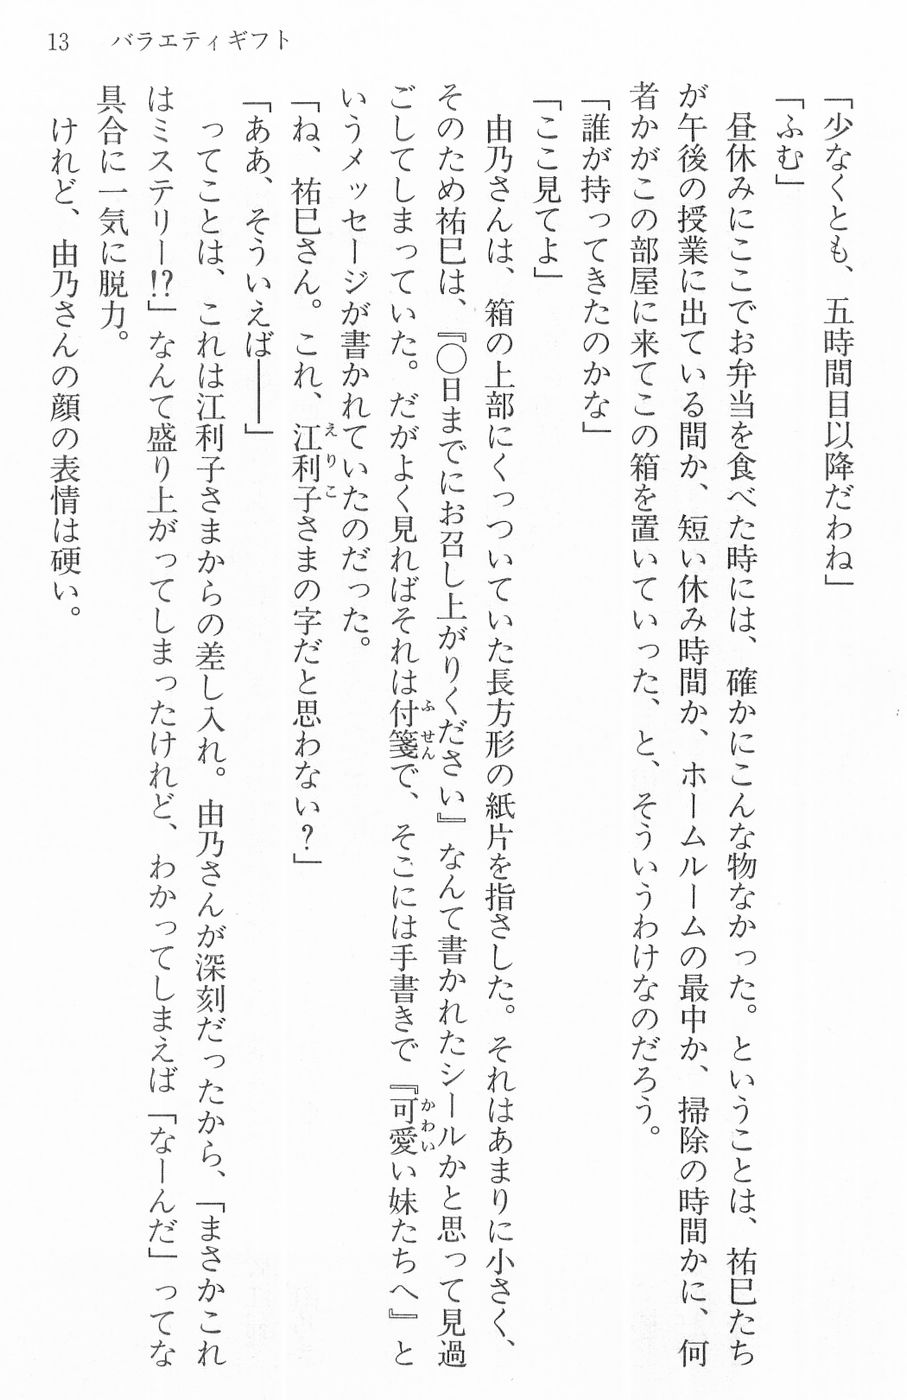 13　バラエティギフト
「少なくとも、五時間目以降だわね」
「ふむ」
　昼休みにここでお弁当を食べた時には、確かにこんな物なかった。ということは、祐巳たち
が午後の授業に出ている間か、短い休み時間か、ホームルームの最中か、掃除の時間かに、何
者かがこの部屋に来てこの箱を置いていった、と、そういうわけなのだろう。
「誰が持ってきたのかな」
「ここ見てよ」
　由乃さんは、箱の上部にくっついていた長方形の紙片を指さした。それはあまりに小さく、
そのため祐巳は、『〇日までにお召し上がりください』なんて書かれたシールかと思って見過
ごしてしまっていた。だがよく見ればそれは付箋で、そこには手書きで『可愛い妹たちへ』と
いうメッセージが書かれていたのだった。
「ね、祐巳さん。これ、江利子さまの字だと思わない？」
「ああ、そういえば――」
　ってことは、これは江利子さまからの差し入れ。由乃さんが深刻だったから、「まさかこれ
はミステリー!?」なんて盛り上がってしまったけれど、わかってしまえば「なーんだ」ってな
具合に一気に脱力。
　けれど、由乃さんの顔の表情は硬い。